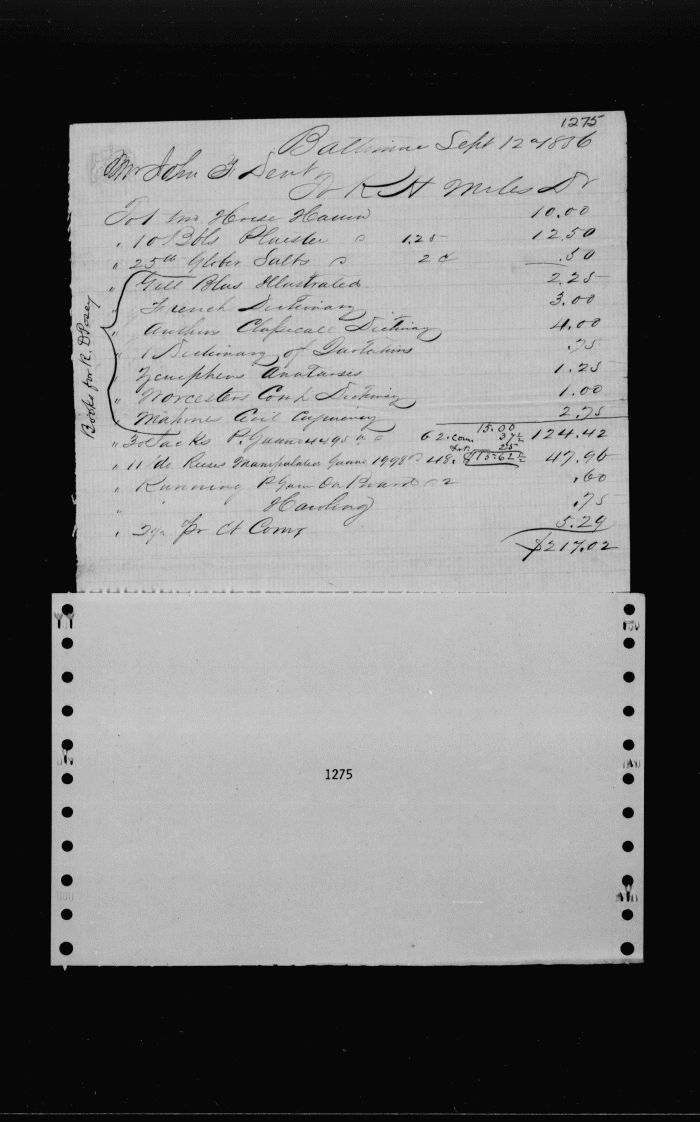 1275
Baltimore Sept 12th 1856
Mr John F Dent
To R H Miles Dr
To 1 Horse 10.00
" 10 Bbls Plaister @ 1.25 12.50
" 25 lb Glober Salts @ 2¢ .50
" Gill Blas Illustrated 2.25
" French Dictionary 3.00
" Anthons Classicall Dictinary 4.00
" 1 Dictionary of Quotations .75
" Zenuphens Anabasis 1.25
" Worcesters Comp Dictinary 1.00
" Mahones Civil Enginering 2.75
Books for R. D Posey
15.00
" 30 Sacks P. Guano 4495 @ 62. com. 37½ 124.42
frt. 25
" 11 do Reeses Manipulated Guano 1998 @ 48. $15.62½ 47.96
" Running P Guano On Board @ 2 .60
" Hauling .75
" 2½ Pr Ct Coms 5.29
$217.02
1275